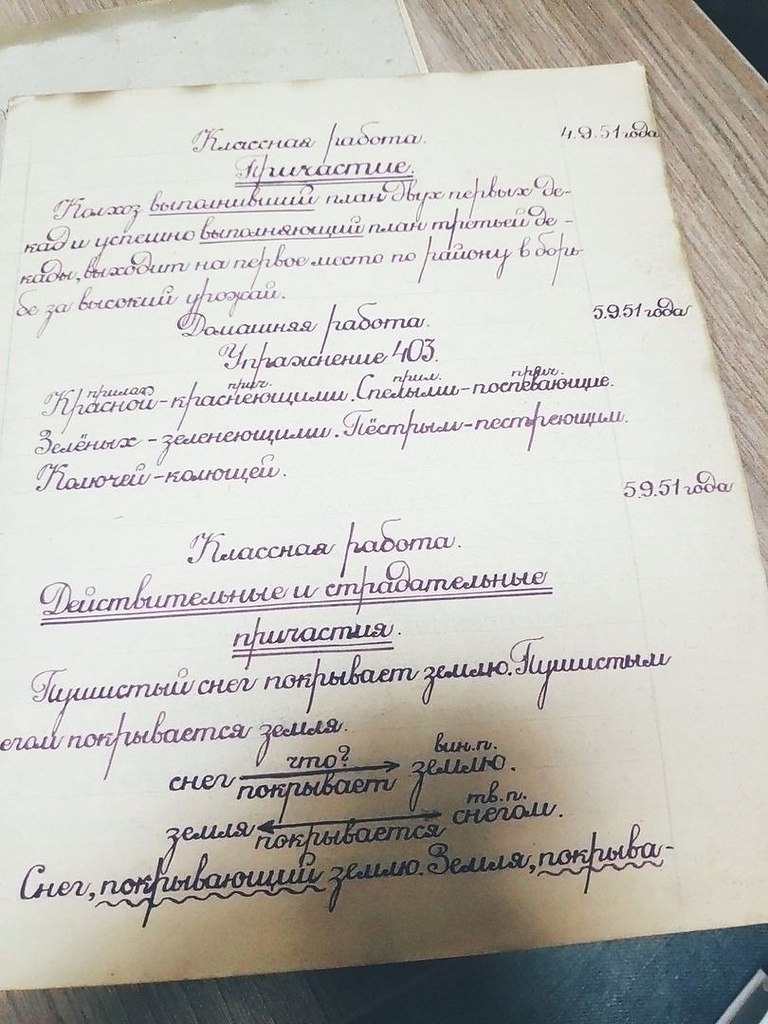 Классная работа. 4.9.51 года
Причастие.
Колхоз выполнивший план двух первых де-
кад и успешно выполняющий план третьей де-
кады, выходит на первое место по району в борь-
бе за высокий урожай.
5.9.51 года
Домашняя работа.
Упражнение 403.
прилаг. прич. прил. прич.
Красной - краснеющими. Спелыми - поспевающие.
Зелёных - зеленеющими. Пёстрым - пестреющим.
Колючей - колющей.
5.9.51 года
Классная работа.
Действительные и страдательные
причастия.
Пушистый снег покрывает землю. Пушистым
егом покрывается земля.
что? вин.п.
снег покрывает землю.
тв.п.
земля покрывается снегом.
Снег, покрывающий землю. Земля, покрыва-